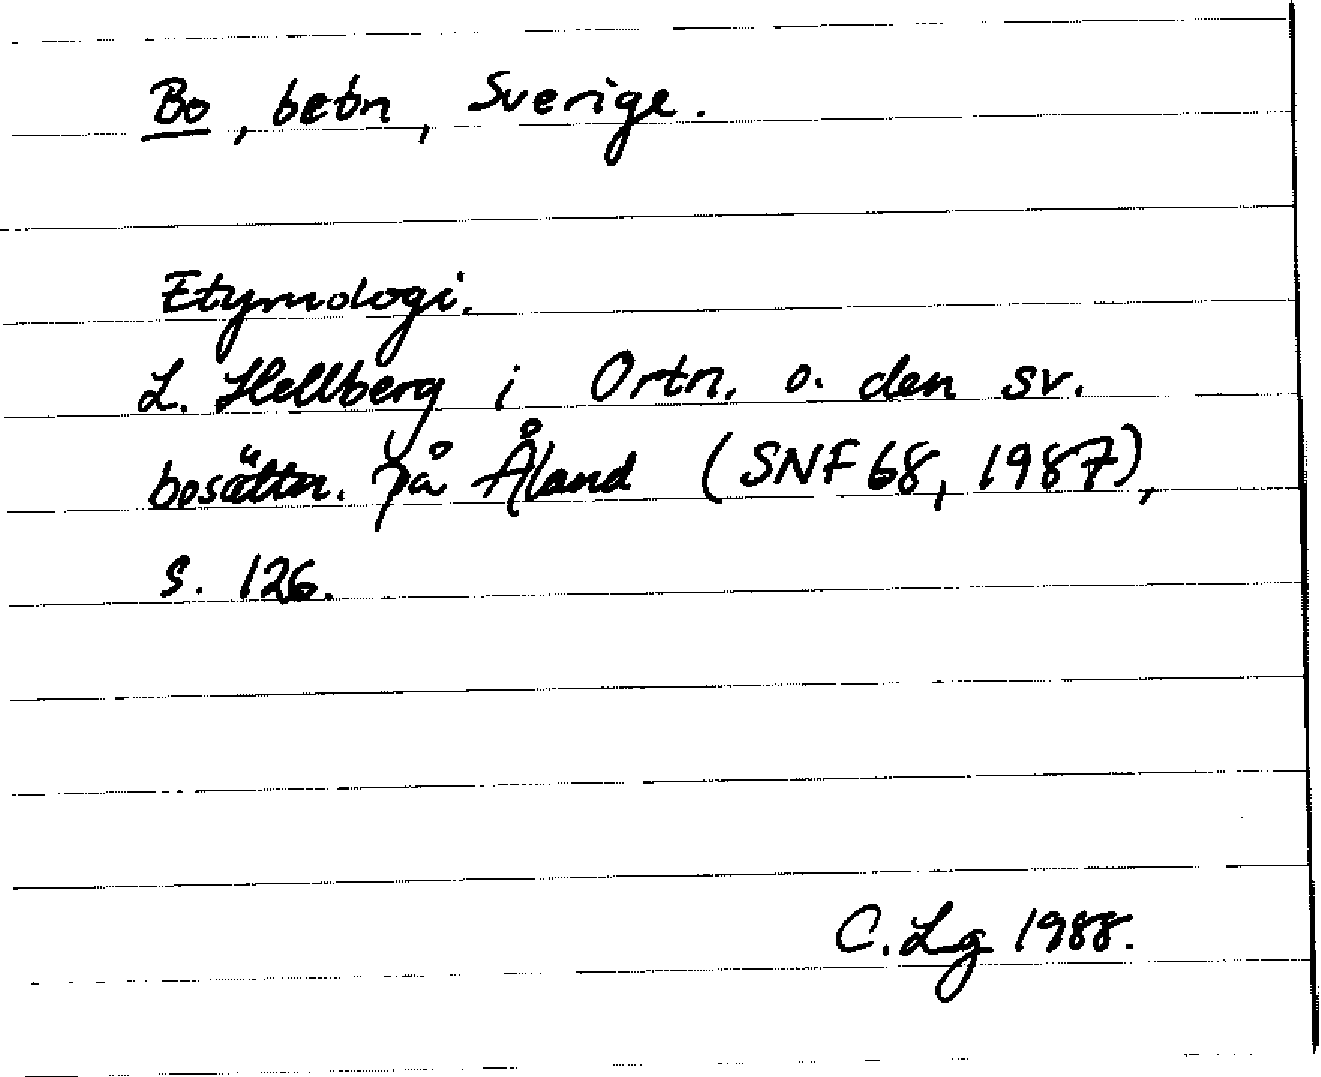 Bo, bebn, Sverige.
Etymologi.
L. Hellberg i Ortn. o. den sv.
bosättn. på Åland (SNF 68, 1987),
s. 126.
C. Lg 1988.